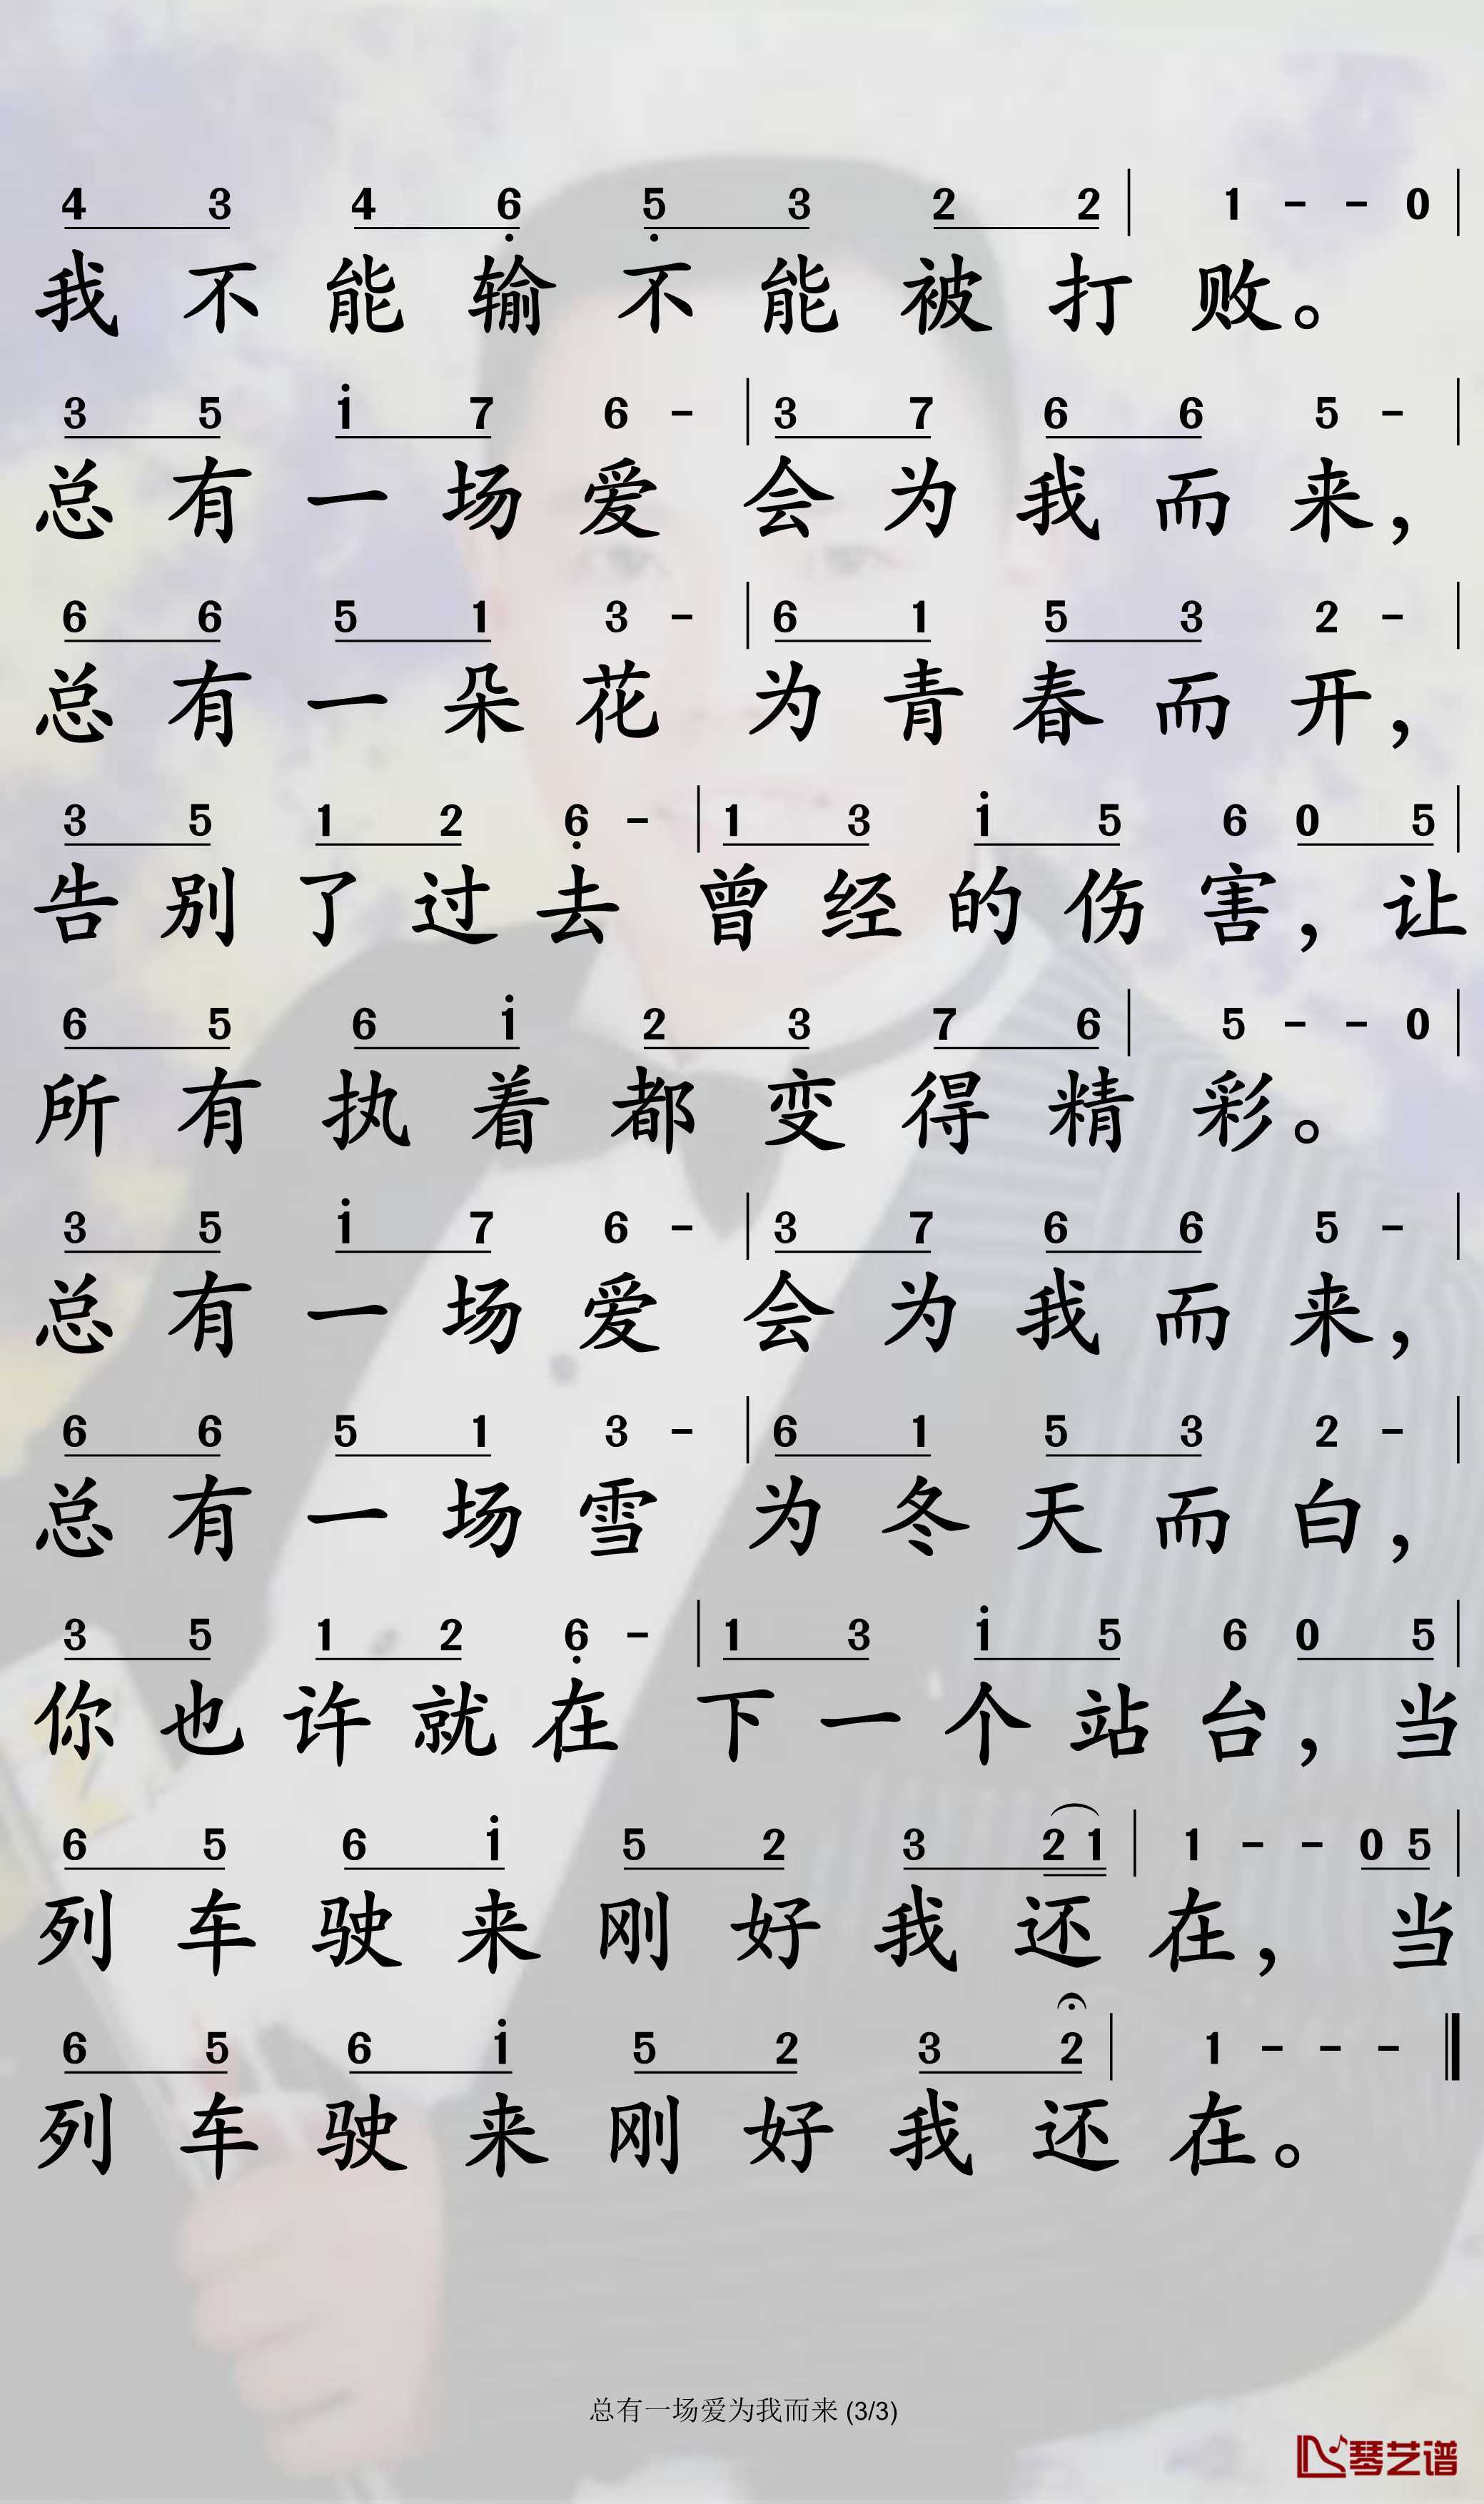 4 3 4 6̣ 5̣ 3 2 2 | 1 - - 0 |
我不能输不能被打败。
3 5 1̇ 7 6 - | 3 7 6 6 5 - |
总有一场爱会为我而来，
6 6 5 1 3 - | 6 1 5 3 2 - |
总有一朵花为青春而开，
3 5 1 2 6̣ - | 1 3 1̇ 5 6 0 5 |
告别了过去曾经的伤害，让
6 5 6 1̇ 2 3 7 6 | 5 - - 0 |
所有执着都变得精彩。
3 5 1̇ 7 6 - | 3 7 6 6 5 - |
总有一场爱会为我而来，
6 6 5 1 3 - | 6 1 5 3 2 - |
总有一场雪为冬天而白，
3 5 1 2 6̣ - | 1 3 1̇ 5 6 0 5 |
你也许就在下一个站台，当
6 5 6 1̇ 5 2 3 2 1 | 1 - - 0 5 |
列车驶来刚好我还在，当
6 5 6 1̇ 5 2 3 2 | 1 - - - ‖
列车驶来刚好我还在。
总有一场爱为我而来 (3/3)
琴艺谱